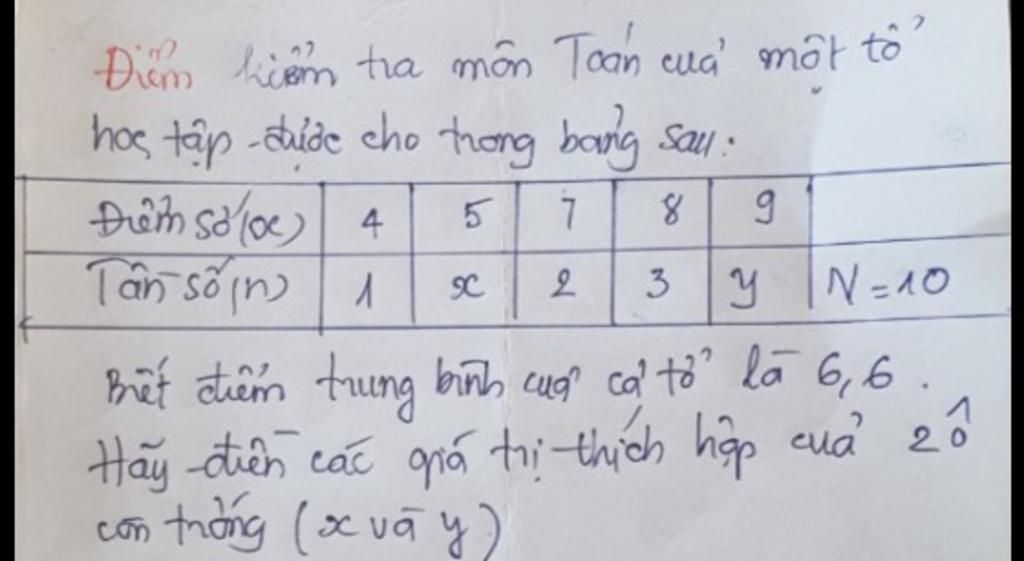 Điểm kiểm tra môn Toán của một tổ
học tập được cho trong bảng sau:
Điểm số (x) 4 5 7 8 9
Tần số (n) 1 x 2 3 y N = 10
Biết điểm trung bình của cả tổ là 6,6.
Hãy điền các giá trị thích hợp của 2 ô
còn trống (x và y)